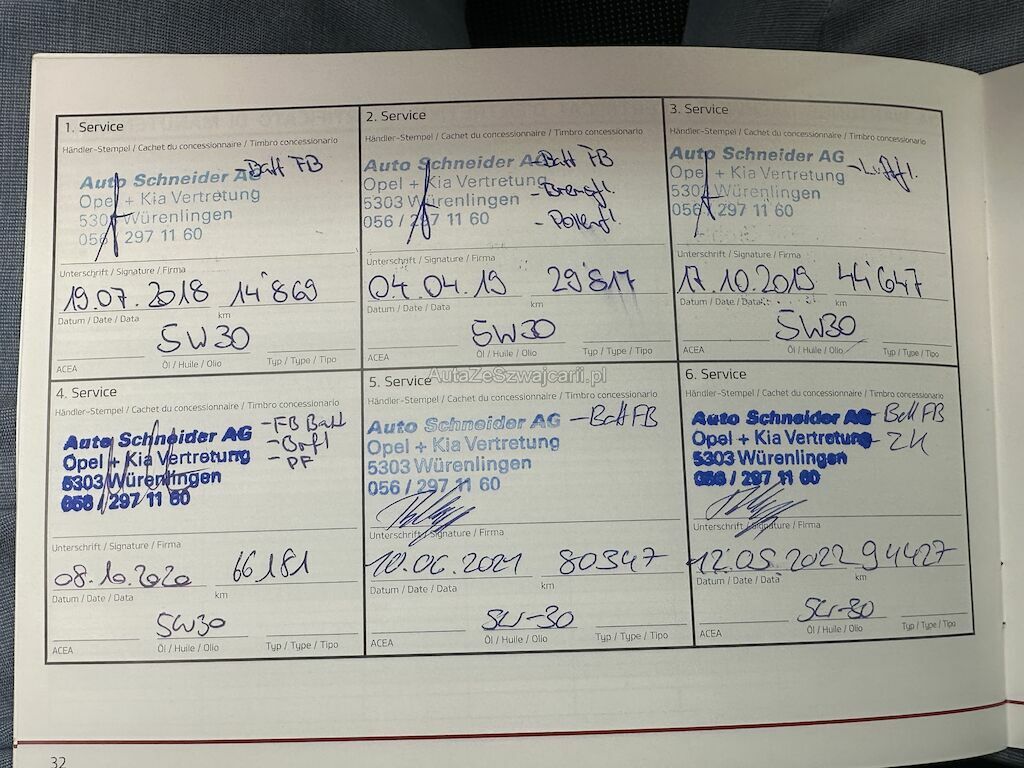 1. Service
Händler-Stempel / Cachet du concessionnaire / Timbro concessionario
Auto Schneider AG - Batt FB
Opel + Kia Vertretung
5303 Würenlingen
056 / 297 11 60
Unterschrift / Signature / Firma
19.07.2018 14'869
Datum / Date / Data km
5W30
ACEA Öl / Huile / Olio Typ / Type / Tipo
2. Service
Händler-Stempel / Cachet du concessionnaire / Timbro concessionario
Auto Schneider AG - Batt FB
Opel + Kia Vertretung - Bremsfl.
5303 Würenlingen - Pollenf.
056 / 297 11 60
Unterschrift / Signature / Firma
04.04.19 29'817
Datum / Date / Data km
5W30
ACEA Öl / Huile / Olio Typ / Type / Tipo
3. Service
Händler-Stempel / Cachet du concessionnaire / Timbro concessionario
Auto Schneider AG - Luftf.
Opel + Kia Vertretung
5303 Würenlingen
056 / 297 11 60
Unterschrift / Signature / Firma
17.10.2019 44'647
Datum / Date / Data km
5W30
ACEA Öl / Huile / Olio Typ / Type / Tipo
4. Service
Händler-Stempel / Cachet du concessionnaire / Timbro concessionario
Auto Schneider AG - FB Batt
Opel + Kia Vertretung - Brfl
5303 Würenlingen - PF
056 / 297 11 60
Unterschrift / Signature / Firma
08.10.2020 66'181
Datum / Date / Data km
5W30
ACEA Öl / Huile / Olio Typ / Type / Tipo
5. Service
Händler-Stempel / Cachet du concessionnaire / Timbro concessionario
Auto Schneider AG - Batt FB
Opel + Kia Vertretung
5303 Würenlingen
056 / 297 11 60
Unterschrift / Signature / Firma
10.06.2021 80547
Datum / Date / Data km
5W-30
ACEA Öl / Huile / Olio Typ / Type / Tipo
6. Service
Händler-Stempel / Cachet du concessionnaire / Timbro concessionario
Auto Schneider AG - Batt FB
Opel + Kia Vertretung - ZK
5303 Würenlingen
056 / 297 11 60
Unterschrift / Signature / Firma
12.05.2022 94427
Datum / Date / Data km
5W-30
ACEA Öl / Huile / Olio Typ / Type / Tipo
AutaZeSzwajcarii.pl
32